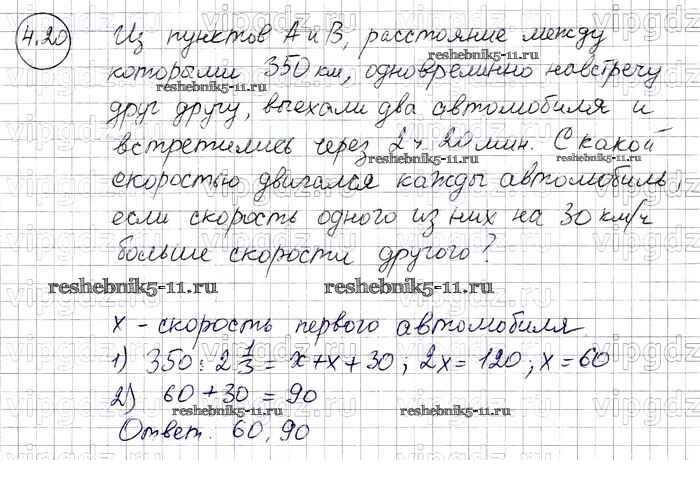 4.20
Из пунктов А и В, расстояние между
которыми 350 км, одновреминно навстречу
друг другу, выехали два автомобиля и
встретились через 2ч 20 мин. С какой
скоростью двигался кажды автомобиль,
если скорость одного из них на 30 км/ч
больше скорости другого?
x - скорость первого автомобиля
1) 350 : 2 1/3 = x + x + 30 ; 2x = 120 ; x = 60
2) 60 + 30 = 90
Ответ. 60, 90
reshebnik5-11.ru
reshebnik5-11.ru
reshebnik5-11.ru
reshebnik5-11.ru
reshebnik5-11.ru
reshebnik5-11.ru
reshebnik5-11.ru
vipgdz.ru